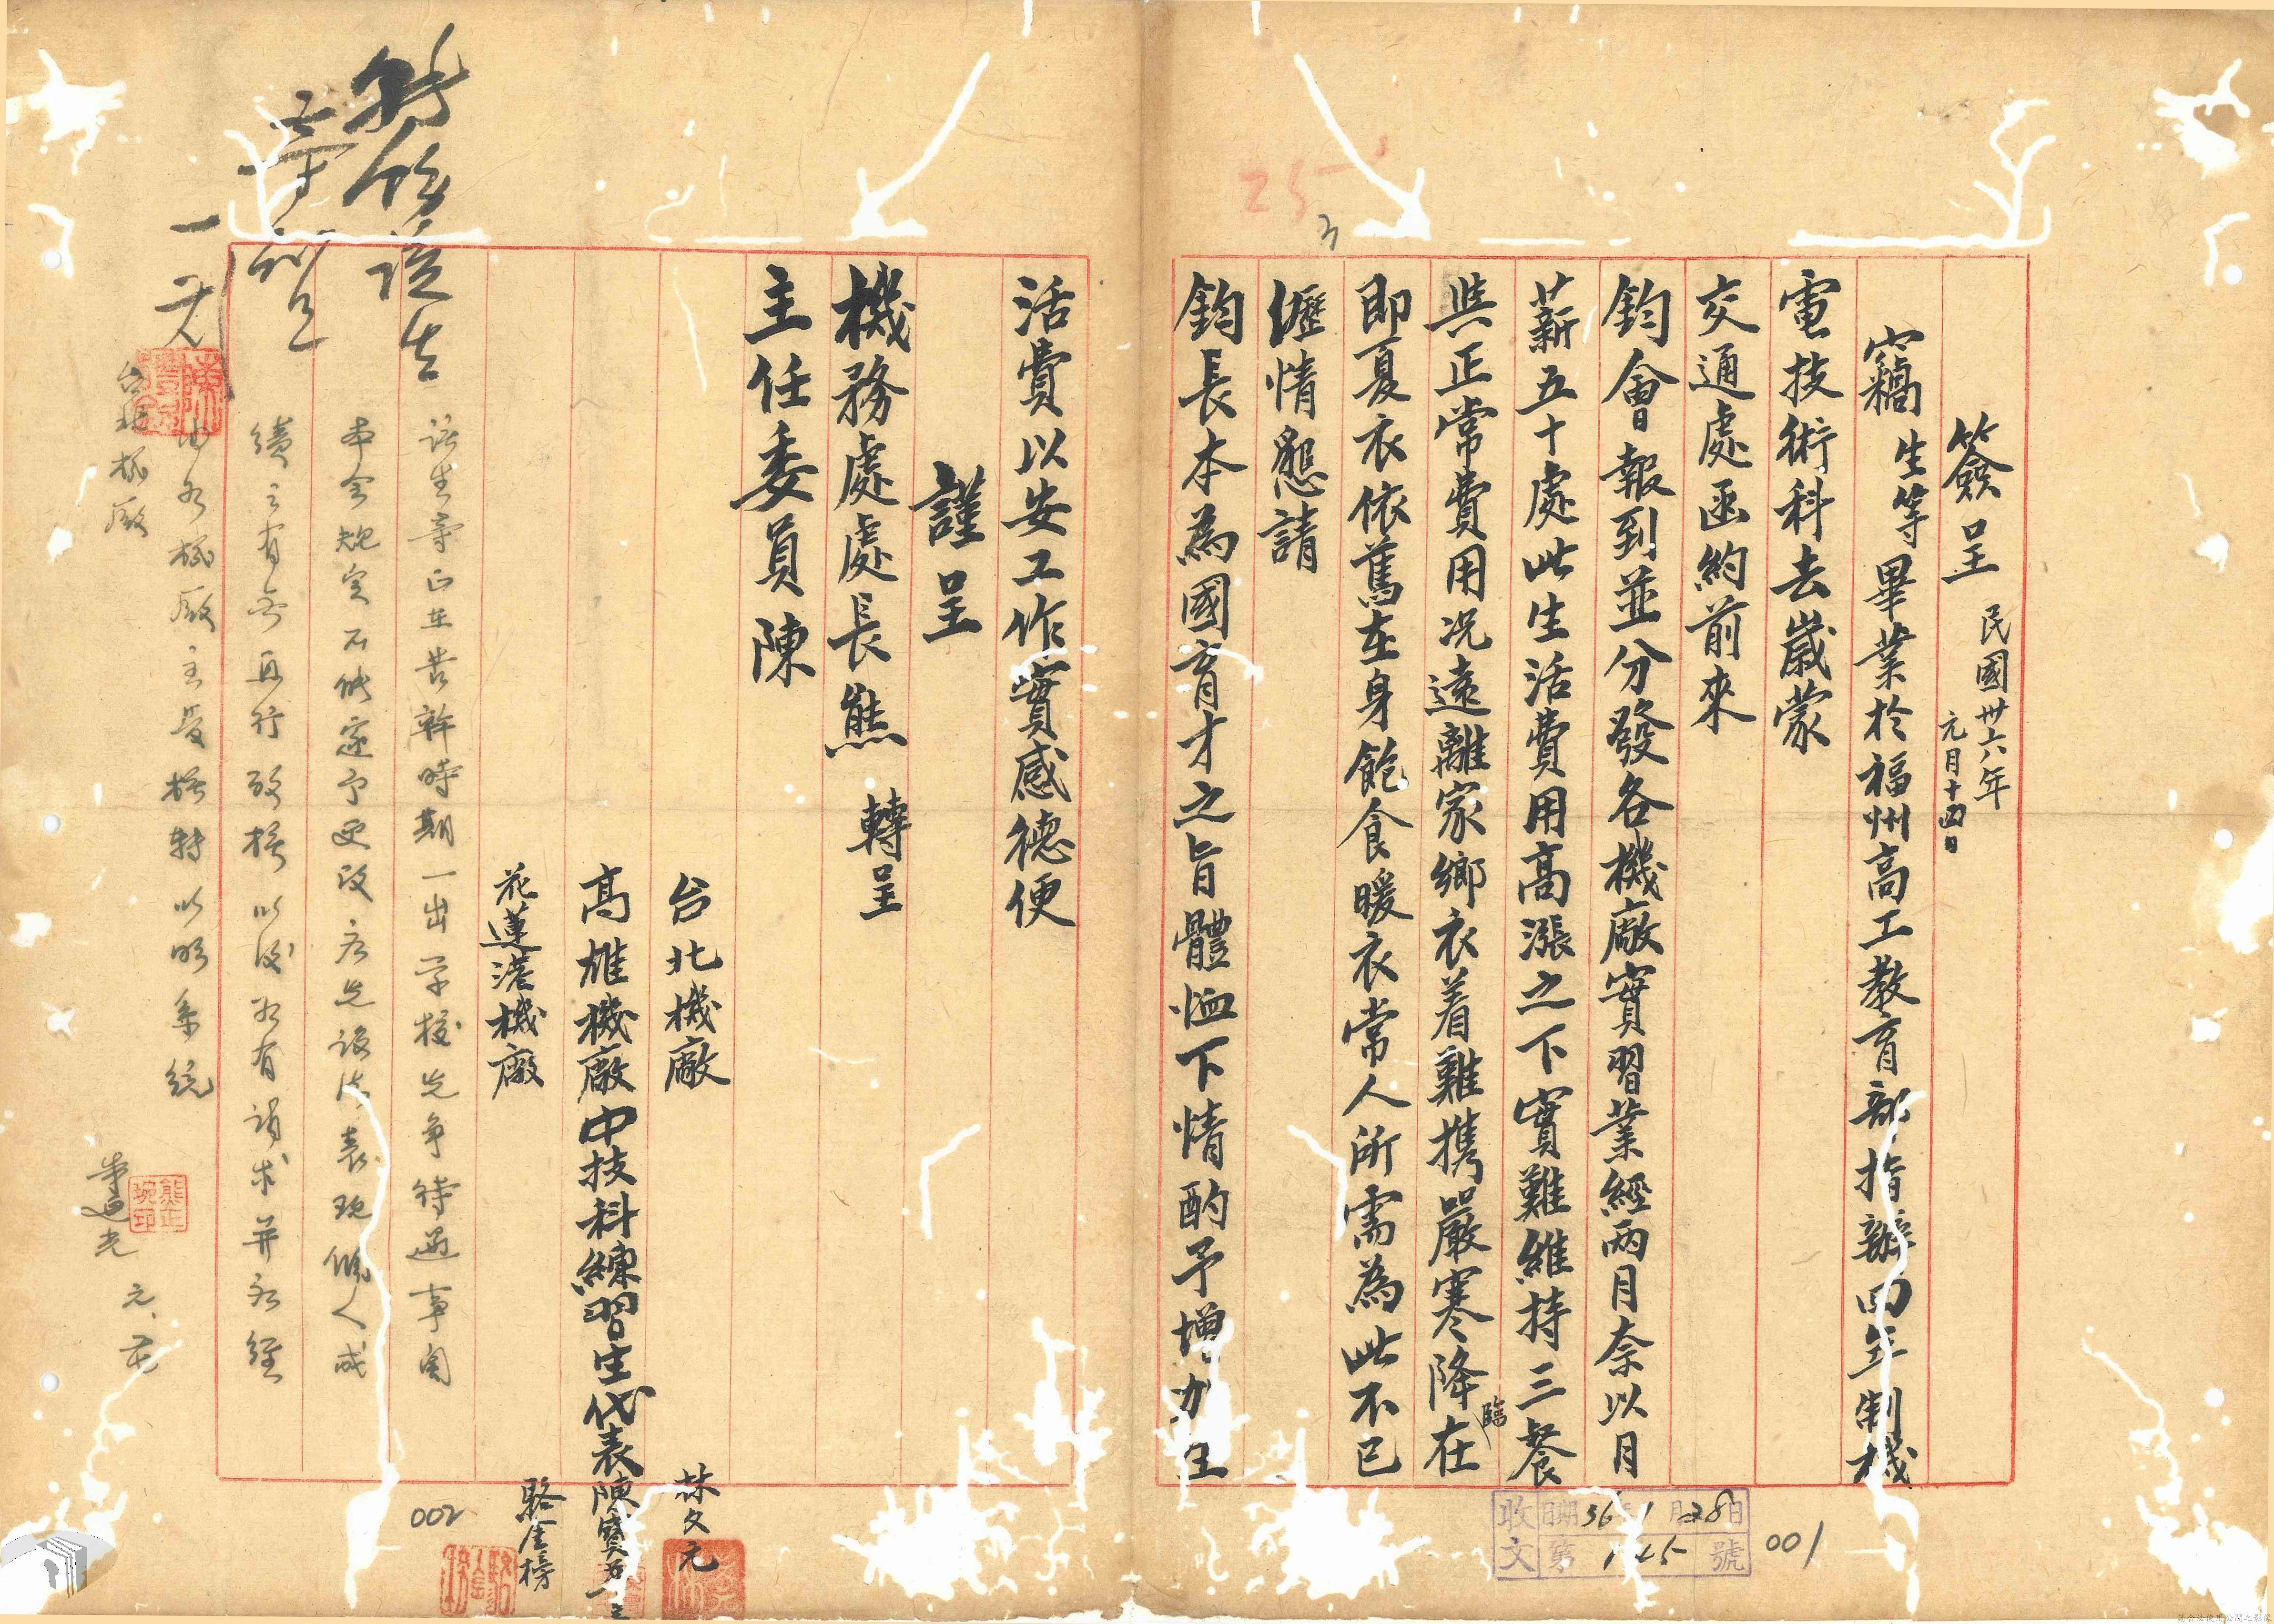 25
簽呈 民國卅六年
元月十四日
竊生等畢業於福州高工教育部指辦四年制機
電技術科去歲蒙
交通處函約前來
鈞會報到並分發各機廠實習業經兩月奈以月
薪五十處此生活費用高漲之下實難維持三餐
與正常費用況遠離家鄉衣着難携嚴寒降在
臨
即夏衣依舊在身飽食暖衣常人所需為此不已
瀝情懇請
鈞長本為國育才之旨體恤下情酌予增加生
活費以安工作實感德便
謹呈
機務處處長熊 轉呈
主任委員陳
台北機廠 林文元
高雄機廠中技科練習生代表陳寶
花蓮港機廠 駱金榜
該生等正在苦幹時期一出学校先争待遇事関
本会規定不能遽予更改应先設法表現個人成
績之有無再行改核以後如有請求并应经
由各機廠主管核轉以明系統
台北機廠
熊正琬印
收文 日期36年1月28日
第145號
001
002